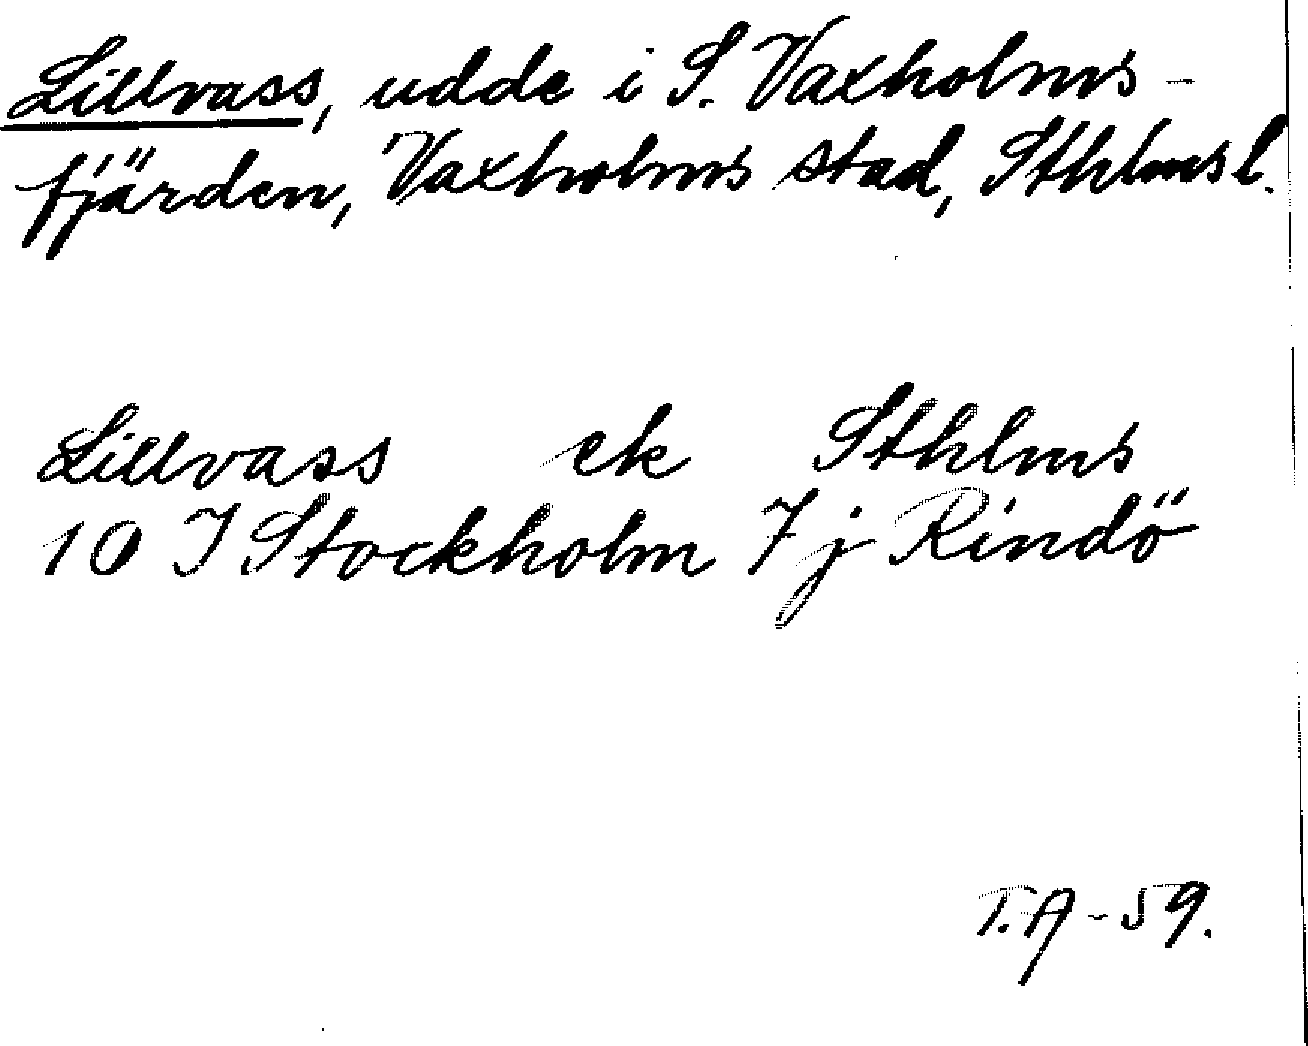 Lillvass, udde i S. Vaxholms-
fjärden, Vaxholms stad, Sthlms l.
Lillvass ek Sthlms
10 I Stockholm 7 j Rindö
T.A-59.